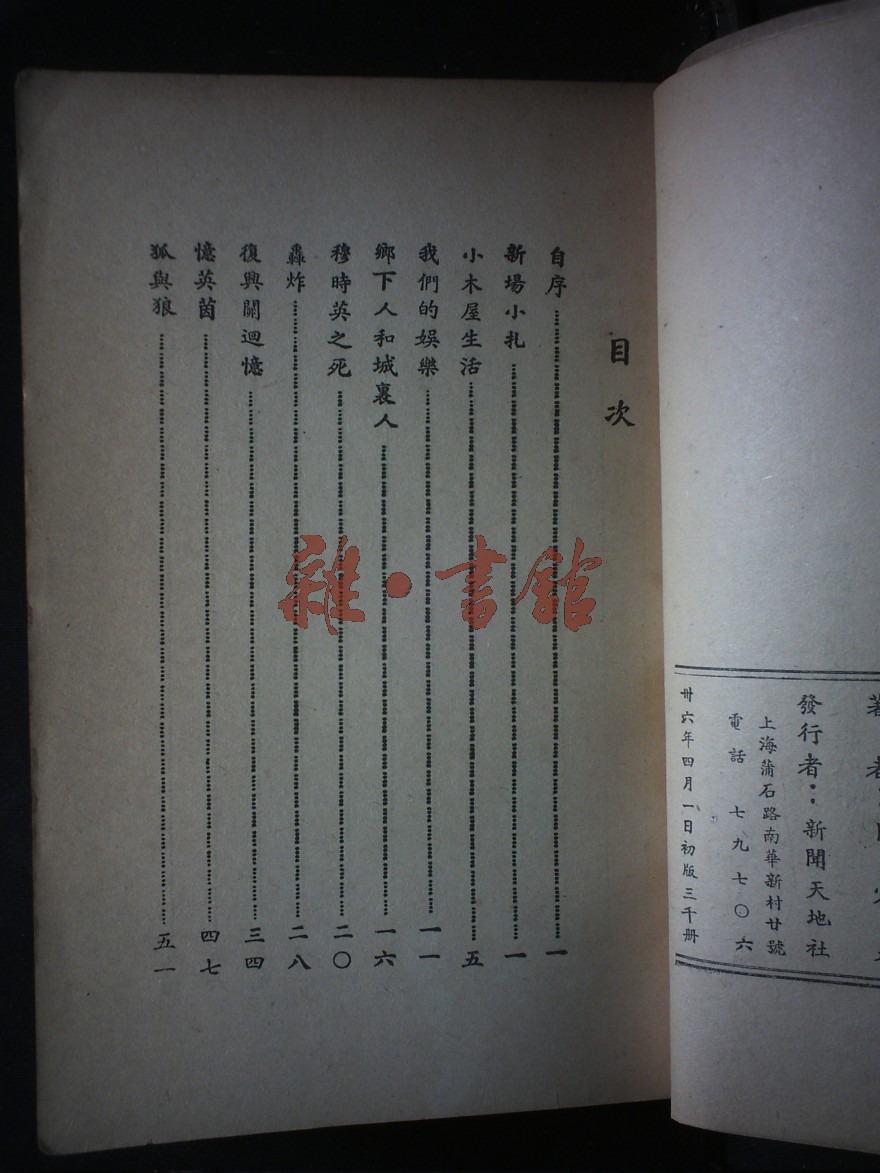 目次
自序 一
新場小札 一
小木屋生活 五
我們的娛樂 一一
鄉下人和城裏人 一六
穆時英之死 二〇
轟炸 二八
復興關迴憶 三四
憶英茵 四七
狐與狼 五一
雜·書館
著者：
發行者：新聞天地社
上海蒲石路南華新村廿號
電話 七九七〇六
卅六年四月一日初版三千册